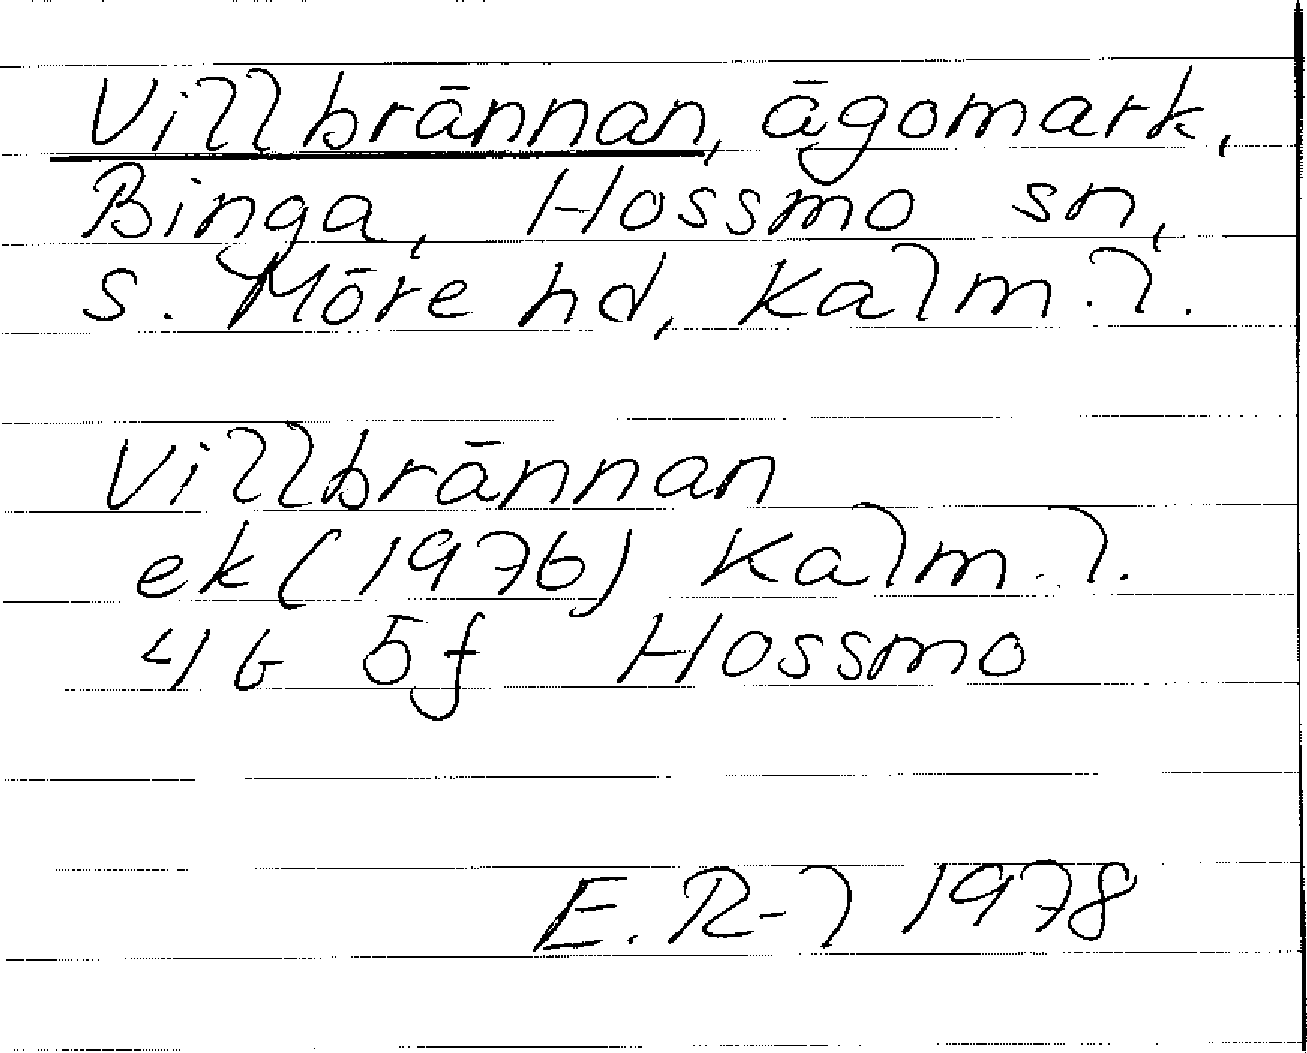 Villbrännan, ägomark,
Binga, Hossmo sn,
S. Möre hd, Kalm. l.
Villbrännan
ek (1976) Kalm. l.
4G 5f Hossmo
E. R-l 1978